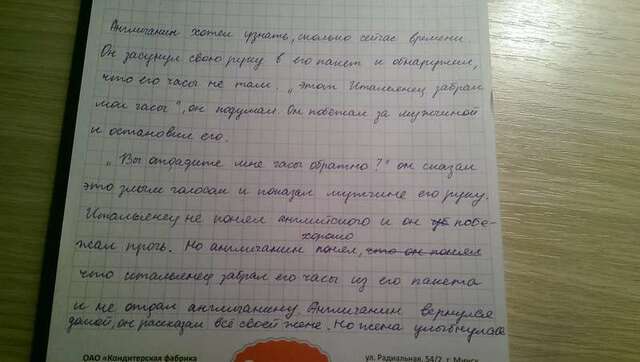 Англичанин хотел узнать, сколько сейчас времени.
Он засунул свою руку в его пакет и обнаружил,
что его часы не там. „Этот Итальянец забрал
мои часы", он подумал. Он побежал за мужчиной
и остановил его.
„Вы отдадите мне часы обратно?" он сказал
это злым голосом и показал мужчине его руку.
Итальянец не понял английского и он побе-
жал прочь. Но англичанин хорошо понял, что он понял
что итальянец забрал его часы из его пакета
и не отдал англичанину. Англичанин вернулся
домой, он рассказал всё своей жене. Но жена улыбнулась
ОАО «Кондитерская фабрика
ул. Радиальная, 54/2, г. Минск